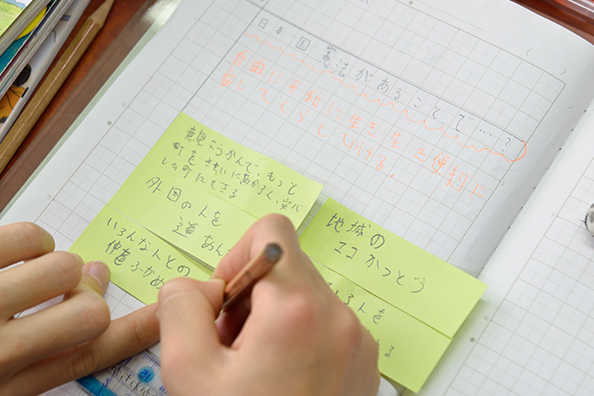 日本国憲法があることで…?
自由に 生き生き 便利に
してくらしていける。
意見こうかんで、もっと
町をきれいにあかるく、安心
した町にできる
外国の人を
道あん
いろんな人との
仲をふかめ
地域の
エコかつどう
る人を
る